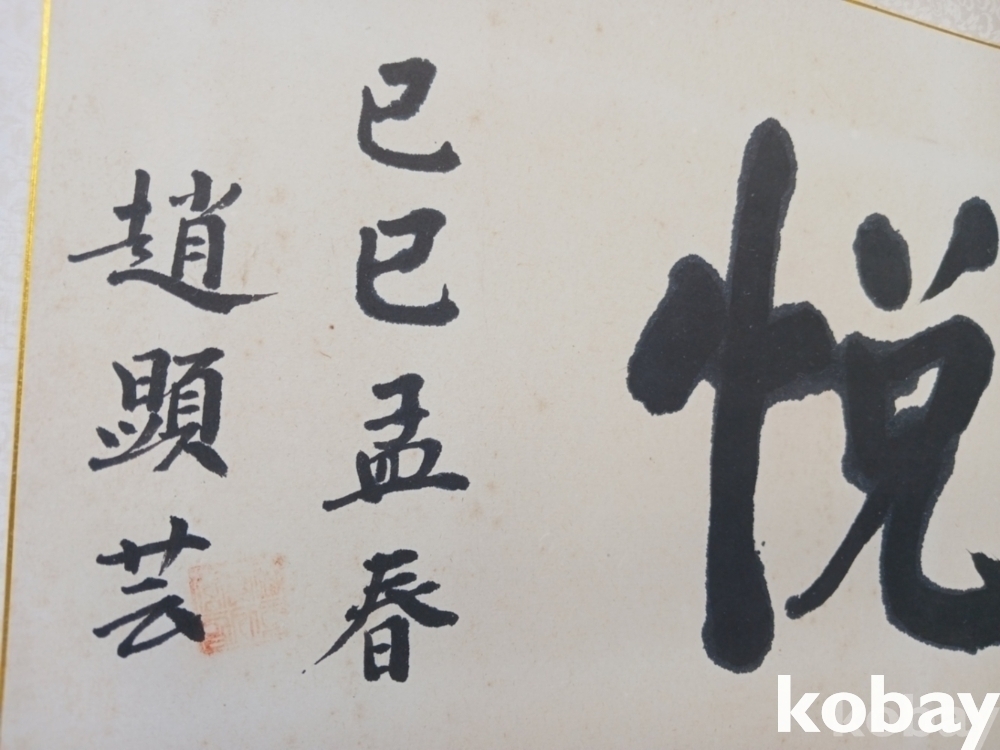 悅
己巳孟春
趙顯芸
kobay